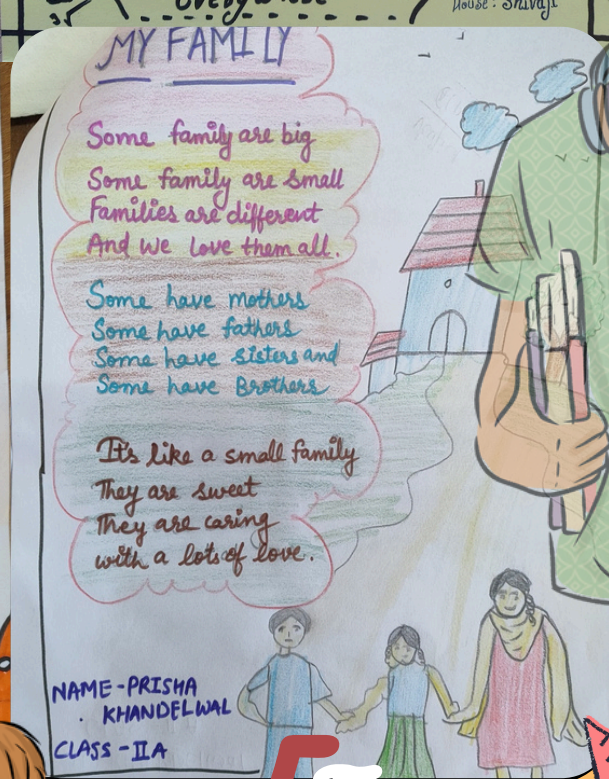 Everywhere
House: Shivaji
MY FAMILY
Some family are big
Some family are small
Families are different
And we love them all.
Some have mothers
Some have fathers
Some have sisters and
Some have Brothers
It's like a small family
They are sweet
They are caring
with a lots of love.
NAME-PRISHA
KHANDELWAL
CLASS-IIA